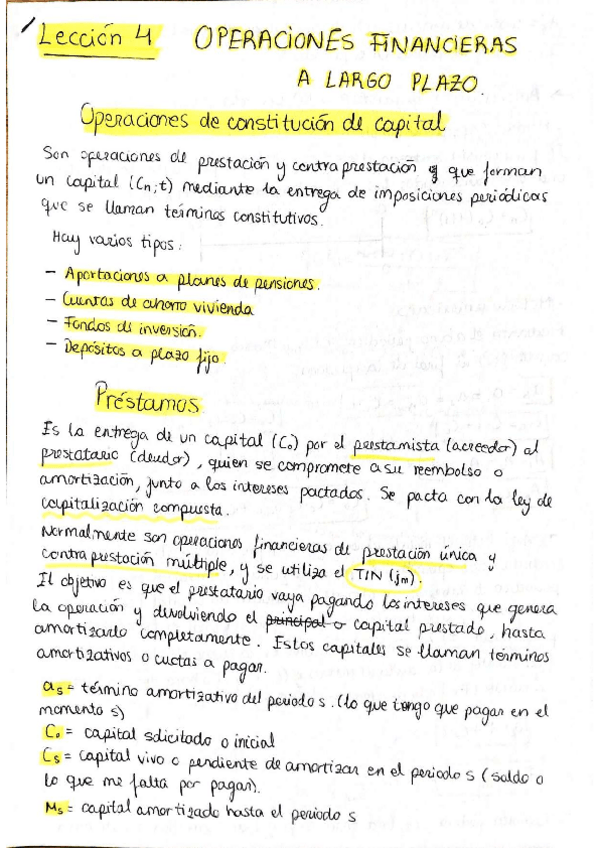 Lección 4 OPERACIONES FINANCIERAS
A LARGO PLAZO.
Operaciones de constitución de capital
Son operaciones de prestación y contraprestación y que forman
un capital (Cn;t) mediante la entrega de imposiciones periódicas
que se llaman términos constitutivos.
Hay varios tipos:
- Aportaciones a planes de pensiones.
- Cuentas de ahorro vivienda
- Fondos de inversión.
- Depósitos a plazo fijo.
Préstamos
Es la entrega de un capital (C₀) por el prestamista (acreedor) al
prestatario (deudor), quien se compromete a su reembolso o
amortización, junto a los intereses pactados. Se pacta con la ley de
capitalización compuesta.
Normalmente son operaciones financieras de prestación única y
contraprestación múltiple, y se utiliza el TIN (jm).
El objetivo es que el prestatario vaya pagando los intereses que genera
la operación y devolviendo el principal o capital prestado, hasta
amortizarlo completamente. Estos capitales se llaman términos
amortizativos o cuotas a pagar.
as = término amortizativo del periodo s. (lo que tengo que pagar en el
momento s)
C₀ = capital solicitado o inicial
Cs = capital vivo o pendiente de amortizar en el periodo s (saldo o
lo que me falta por pagar).
Ms = capital amortizado hasta el periodo s